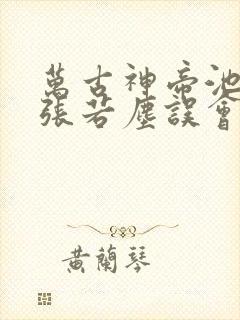 萬古神帝池
張若塵誤會
黄蘭琴